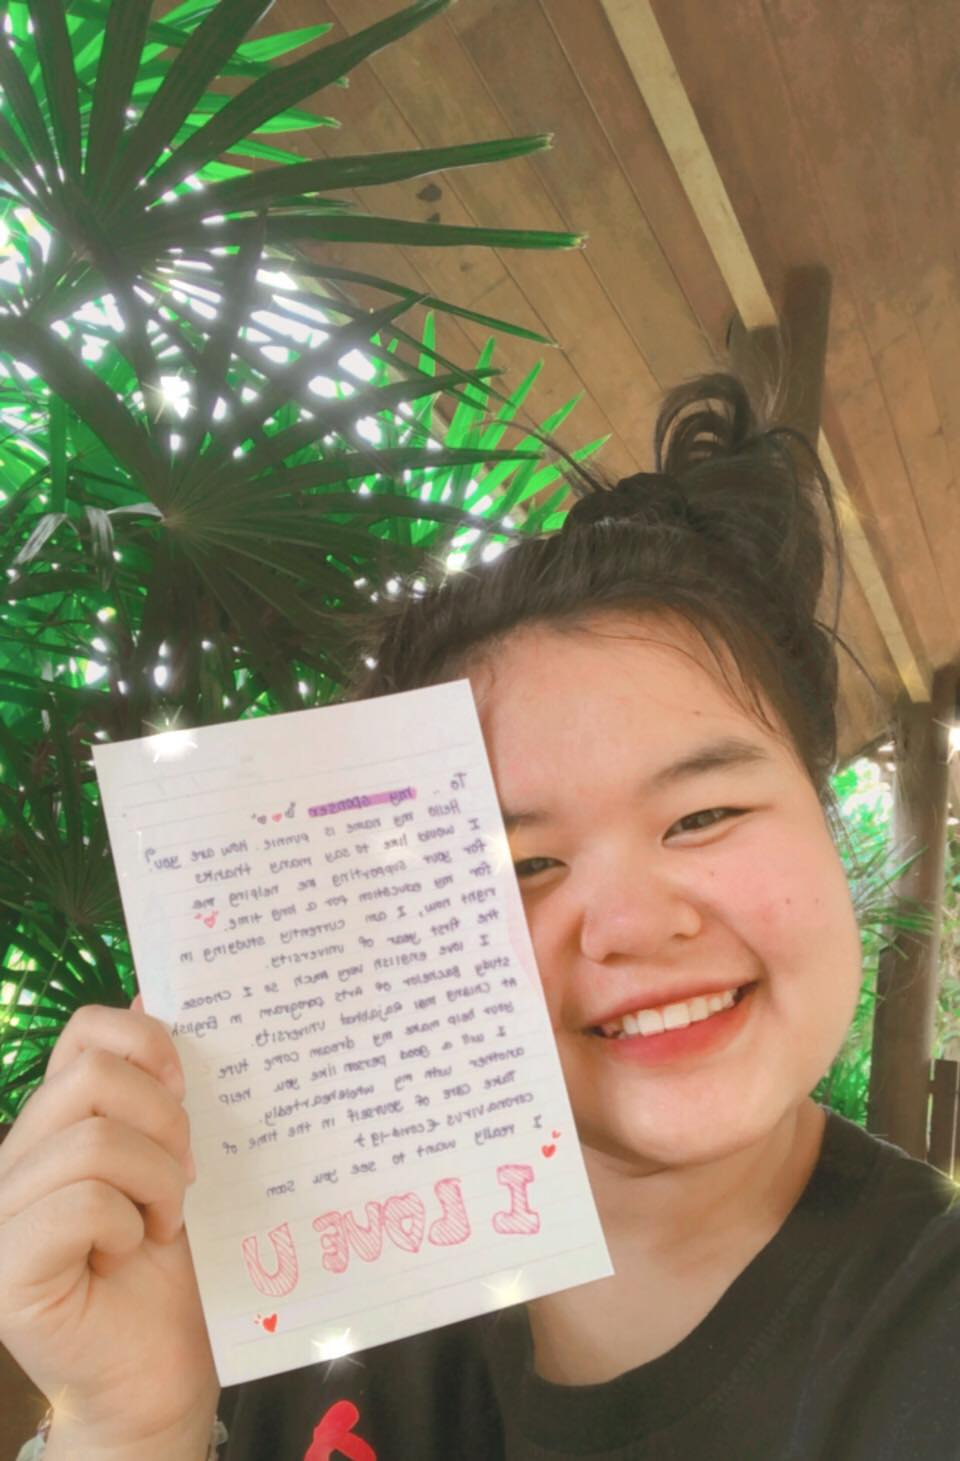 To . my sponser
Hello my name is Punnie. How are you?
I would like to say to many thanks
for your supporting me helping me
for my education for a long time.
right now, I am currently studying in
the first year of university.
I love english very much so I choose
study Bachelor of Arts program in English
At Chiang mai Rajabhat University.
your help make my dream come ture
I will a good person like you help
another with my wholeheartedly.
Take care of yourself in the time of
coronavirus (covid-19)
I really want to see you soon
I LOVE U